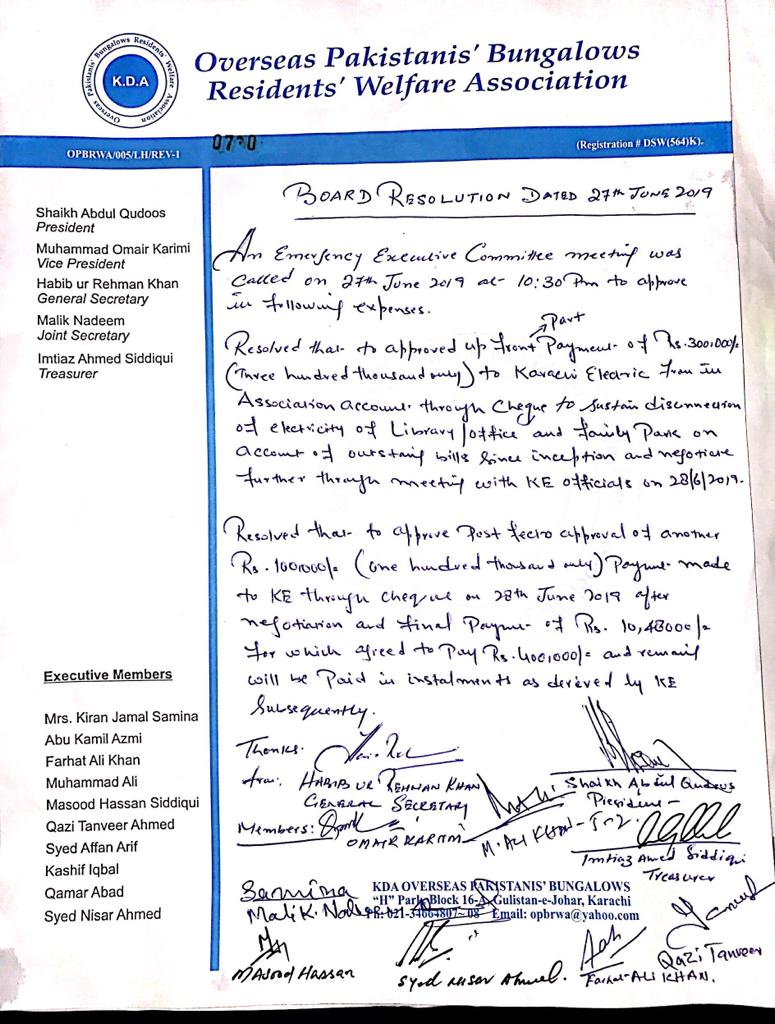 Overseas Pakistanis' Bungalows Residents' Welfare Association
K.D.A
Overseas Pakistanis' Bungalows
Residents' Welfare Association
OPBRWA/005/LH/REV-1
0730
(Registration # DSW(564)K).
Shaikh Abdul Qudoos
President
Muhammad Omair Karimi
Vice President
Habib ur Rehman Khan
General Secretary
Malik Nadeem
Joint Secretary
Imtiaz Ahmed Siddiqui
Treasurer
Executive Members
Mrs. Kiran Jamal Samina
Abu Kamil Azmi
Farhat Ali Khan
Muhammad Ali
Masood Hassan Siddiqui
Qazi Tanveer Ahmed
Syed Affan Arif
Kashif Iqbal
Qamar Abad
Syed Nisar Ahmed
BOARD RESOLUTION DATED 27th JUNE 2019
An Emergency Executive Committee meeting was
called on 27th June 2019 at 10:30 Pm to approve
in following expenses.
Part
Resolved that to approved up front Payment of Rs.300,000/-
(Three hundred thousand only) to Karachi Electric from in
Association account through Cheque to sustain disconnection
of electricity of Library/office and family Park on
account of outstaing bills since inception and negotiate
further through meeting with KE officials on 28/6/2019.
Resolved that to approve Post fecto approval of another
Rs. 100,000/- (one hundred thousand only) Payment made
to KE through cheque on 28th June 2019 after
negotiation and final Payment of Rs. 10,48000/-
for which agreed to Pay Rs.400,000/- and remaing
will be Paid in instalments as derived by KE
Subsequently.
Thanks.
HABIB UR REHMAN KHAN
GENERAL SECRETARY
Shaikh Abdul Qudoos
President
Members:
OMAIR KARIMI
M. ALI KHAN
Imtiaz Ahmed Siddiqui
Treasurer
Samina
Malik Nadeem
KDA OVERSEAS PAKISTANIS' BUNGALOWS
"H" Park Block 16-A, Gulistan-e-Johar, Karachi
Ph: 021-34664807~08 Email: opbrwa@yahoo.com
Masood Hassan
Syed Nisar Ahmed.
Farhat ALI KHAN.
Qazi Tanveer